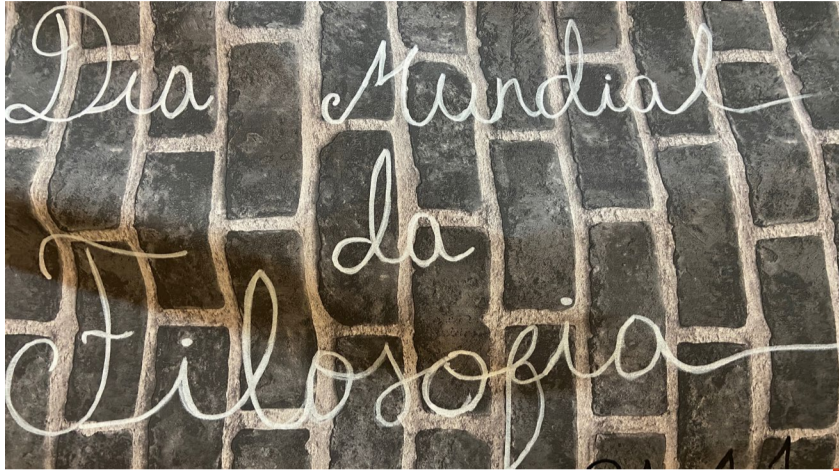 Dia Mundial
da
Filosofia